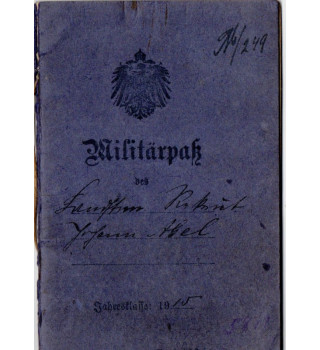 Militärpaß
des
Landstm Rekrut
Johann Abel
Jahresklasse: 1915